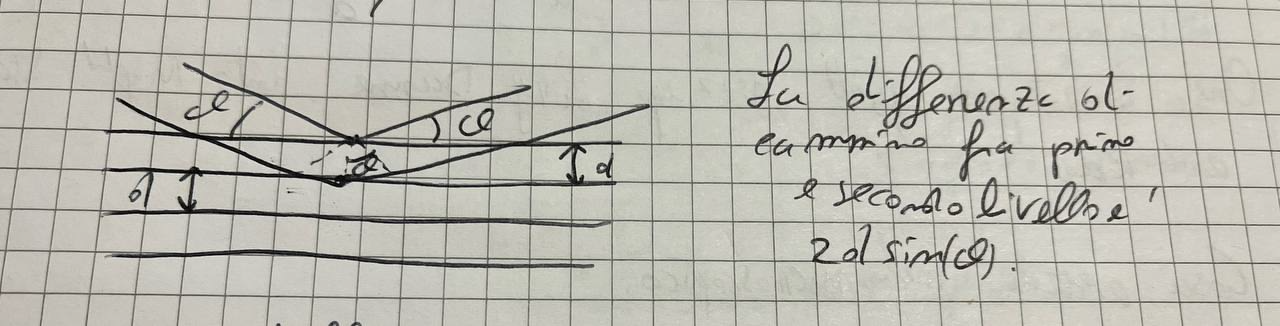 φ
φ
φ
d
d
La differenza di
cammino fra primo
e secondo livello è
2d sin(φ).